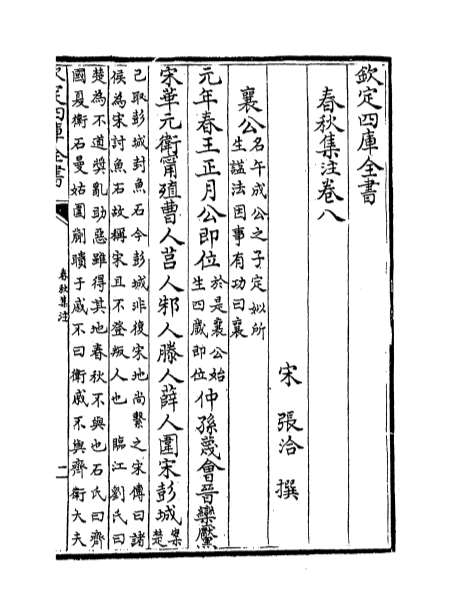 欽定四庫全書
春秋集注卷八
宋 張洽 撰
襄公名午成公之子定姒所
生諡法因事有功曰襄
元年春王正月公即位於是襄公始
生四歲即位仲孫蔑會晉欒黶
宋華元衛甯殖曹人莒人邾人滕人薛人圍宋彭城案
楚
已取彭城封魚石今彭城非復宋地尚繫之宋傳曰諸
侯為宋討魚石故稱宋且不登叛人也 臨江劉氏曰
楚為不道奬亂助惡雖得其地春秋不與也石氏曰齊
國夏衛石曼姑圍蒯聵于戚不曰衛戚不與齊衛大夫
欽定四庫全書
春秋集注